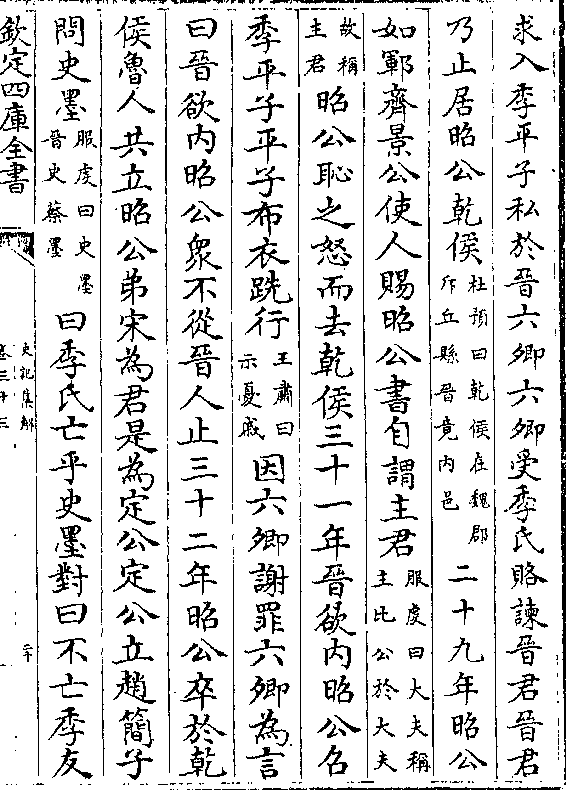 求入季平子私於晉六卿六卿受季氏賂諫晉君晉君
乃止居昭公乾侯杜預曰乾侯在魏郡斥丘縣晉竟内邑二十九年昭公
如鄆齊景公使人賜昭公書自謂主君服虔曰大夫稱主比公於大夫
故稱主君昭公恥之怒而去乾侯三十一年晉欲内昭公召
季平子平子布衣跣行王肅曰示憂戚因六卿謝罪六卿為言
曰晉欲内昭公衆不從晉人止三十二年昭公卒於乾
侯魯人共立昭公弟宋為君是為定公定公立趙簡子
問史墨服虔曰史墨晉史蔡墨曰季氏亡乎史墨對曰不亡季友
欽定四庫全書
史記集解
卷三十三
二十